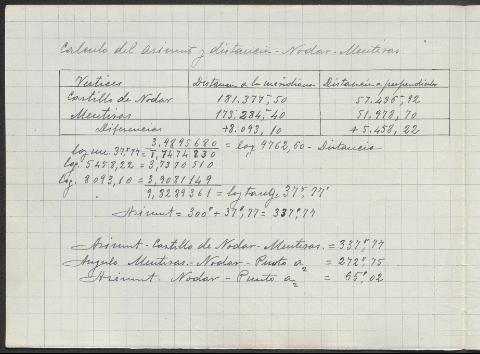 Calculo del Azimut y distancia - Nodar - Mentiras
Vertices Distancia a la meridiana Distancia a perpendicular
Castillo de Nodar 181.377,50 57.436,92
Mentiras 173.284,40 51.978,70
Diferencias +8.093,10 +5.458,22
3,9895680 = log 9762,60 - Distancia
log sen. 37º,77 = 1,7474830
log. 5458,22 = 3,7370510
log. 8093,10 = 3,9081149
1,8289361 = log tang. 37º,77'
Azimut = 300º + 37º,77 = 337º,77
Azimut - Castillo de Nodar - Mentiras = 337º,77
Angulo Mentiras - Nodar - Punto a2 = 272º,75
Azimut Nodar - Punto a2 = 65º,02